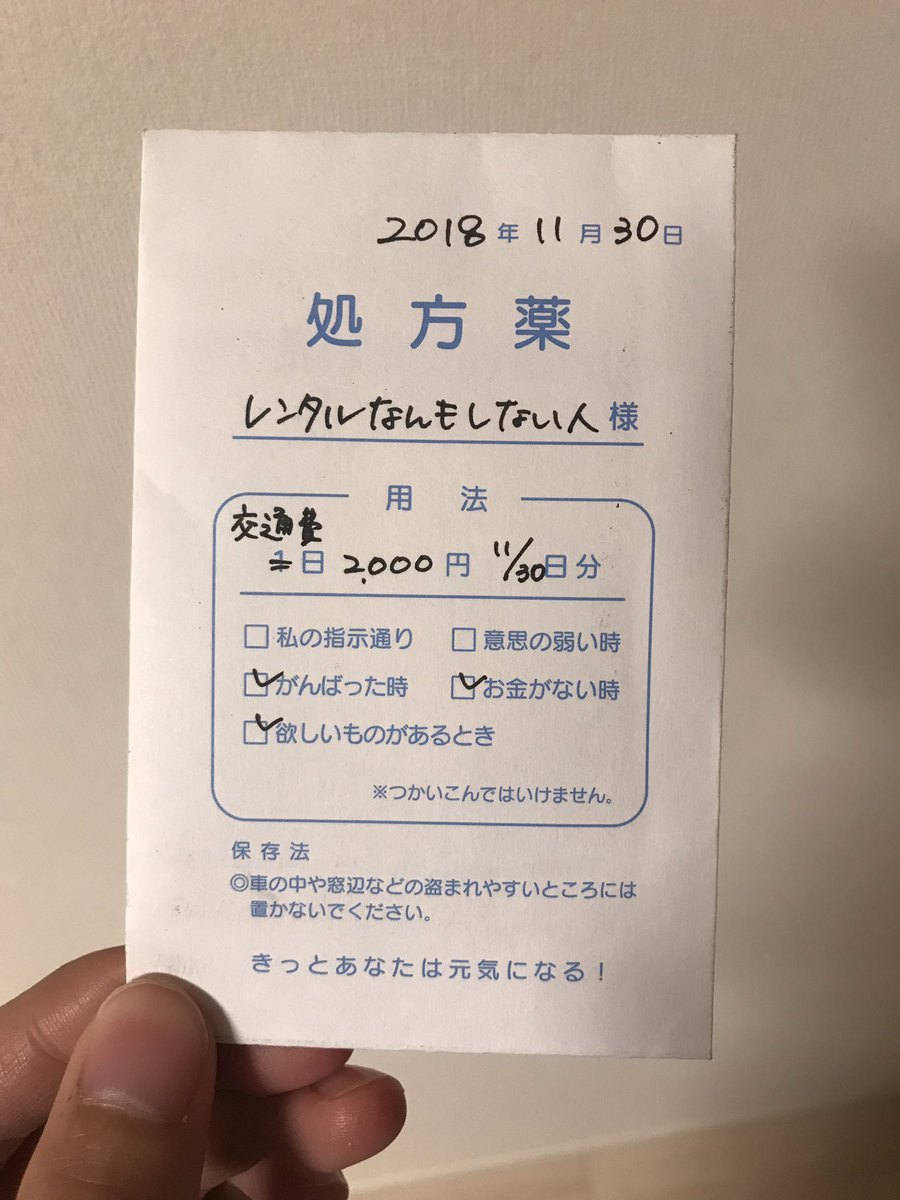 2018年11月30日
処方薬
レンタルなんもしない人様
用法
交通費
1日 2,000円 11/30日分
□私の指示通り □意思の弱い時
☑がんばった時 ☑お金がない時
☑欲しいものがあるとき
※つかいこんではいけません。
保存法
◎車の中や窓辺などの盗まれやすいところには
置かないでください。
きっとあなたは元気になる!